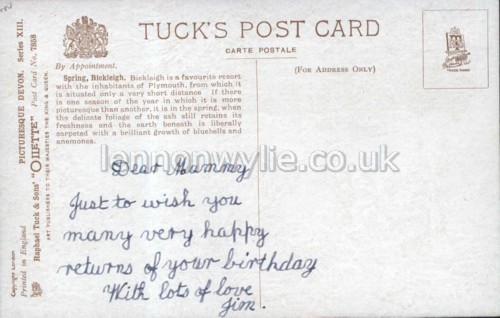 TUCK'S POST CARD
CARTE POSTALE
By Appointment.
(FOR ADDRESS ONLY)
Spring, Bickleigh. Bickleigh is a favourite resort
with the inhabitants of Plymouth, from which it
is situated only a very short distance. If there
is one season of the year in which it is more
picturesque than another, it is in the spring, when
the delicate foliage of the ash still retains its
freshness and the earth beneath is liberally
carpeted with a brilliant growth of bluebells and
anemones.
PICTURESQUE DEVON. Series XIII.
Raphael Tuck & Sons' "OILETTE" Post Card No. 7858
ART PUBLISHERS TO THEIR MAJESTIES THE KING & QUEEN.
Printed in England
Copyright London
TRADE MARK
Iannonwylie.co.uk
Dear Mummy
Just to wish you
many very happy
returns of your birthday
With lots of love
Jim.